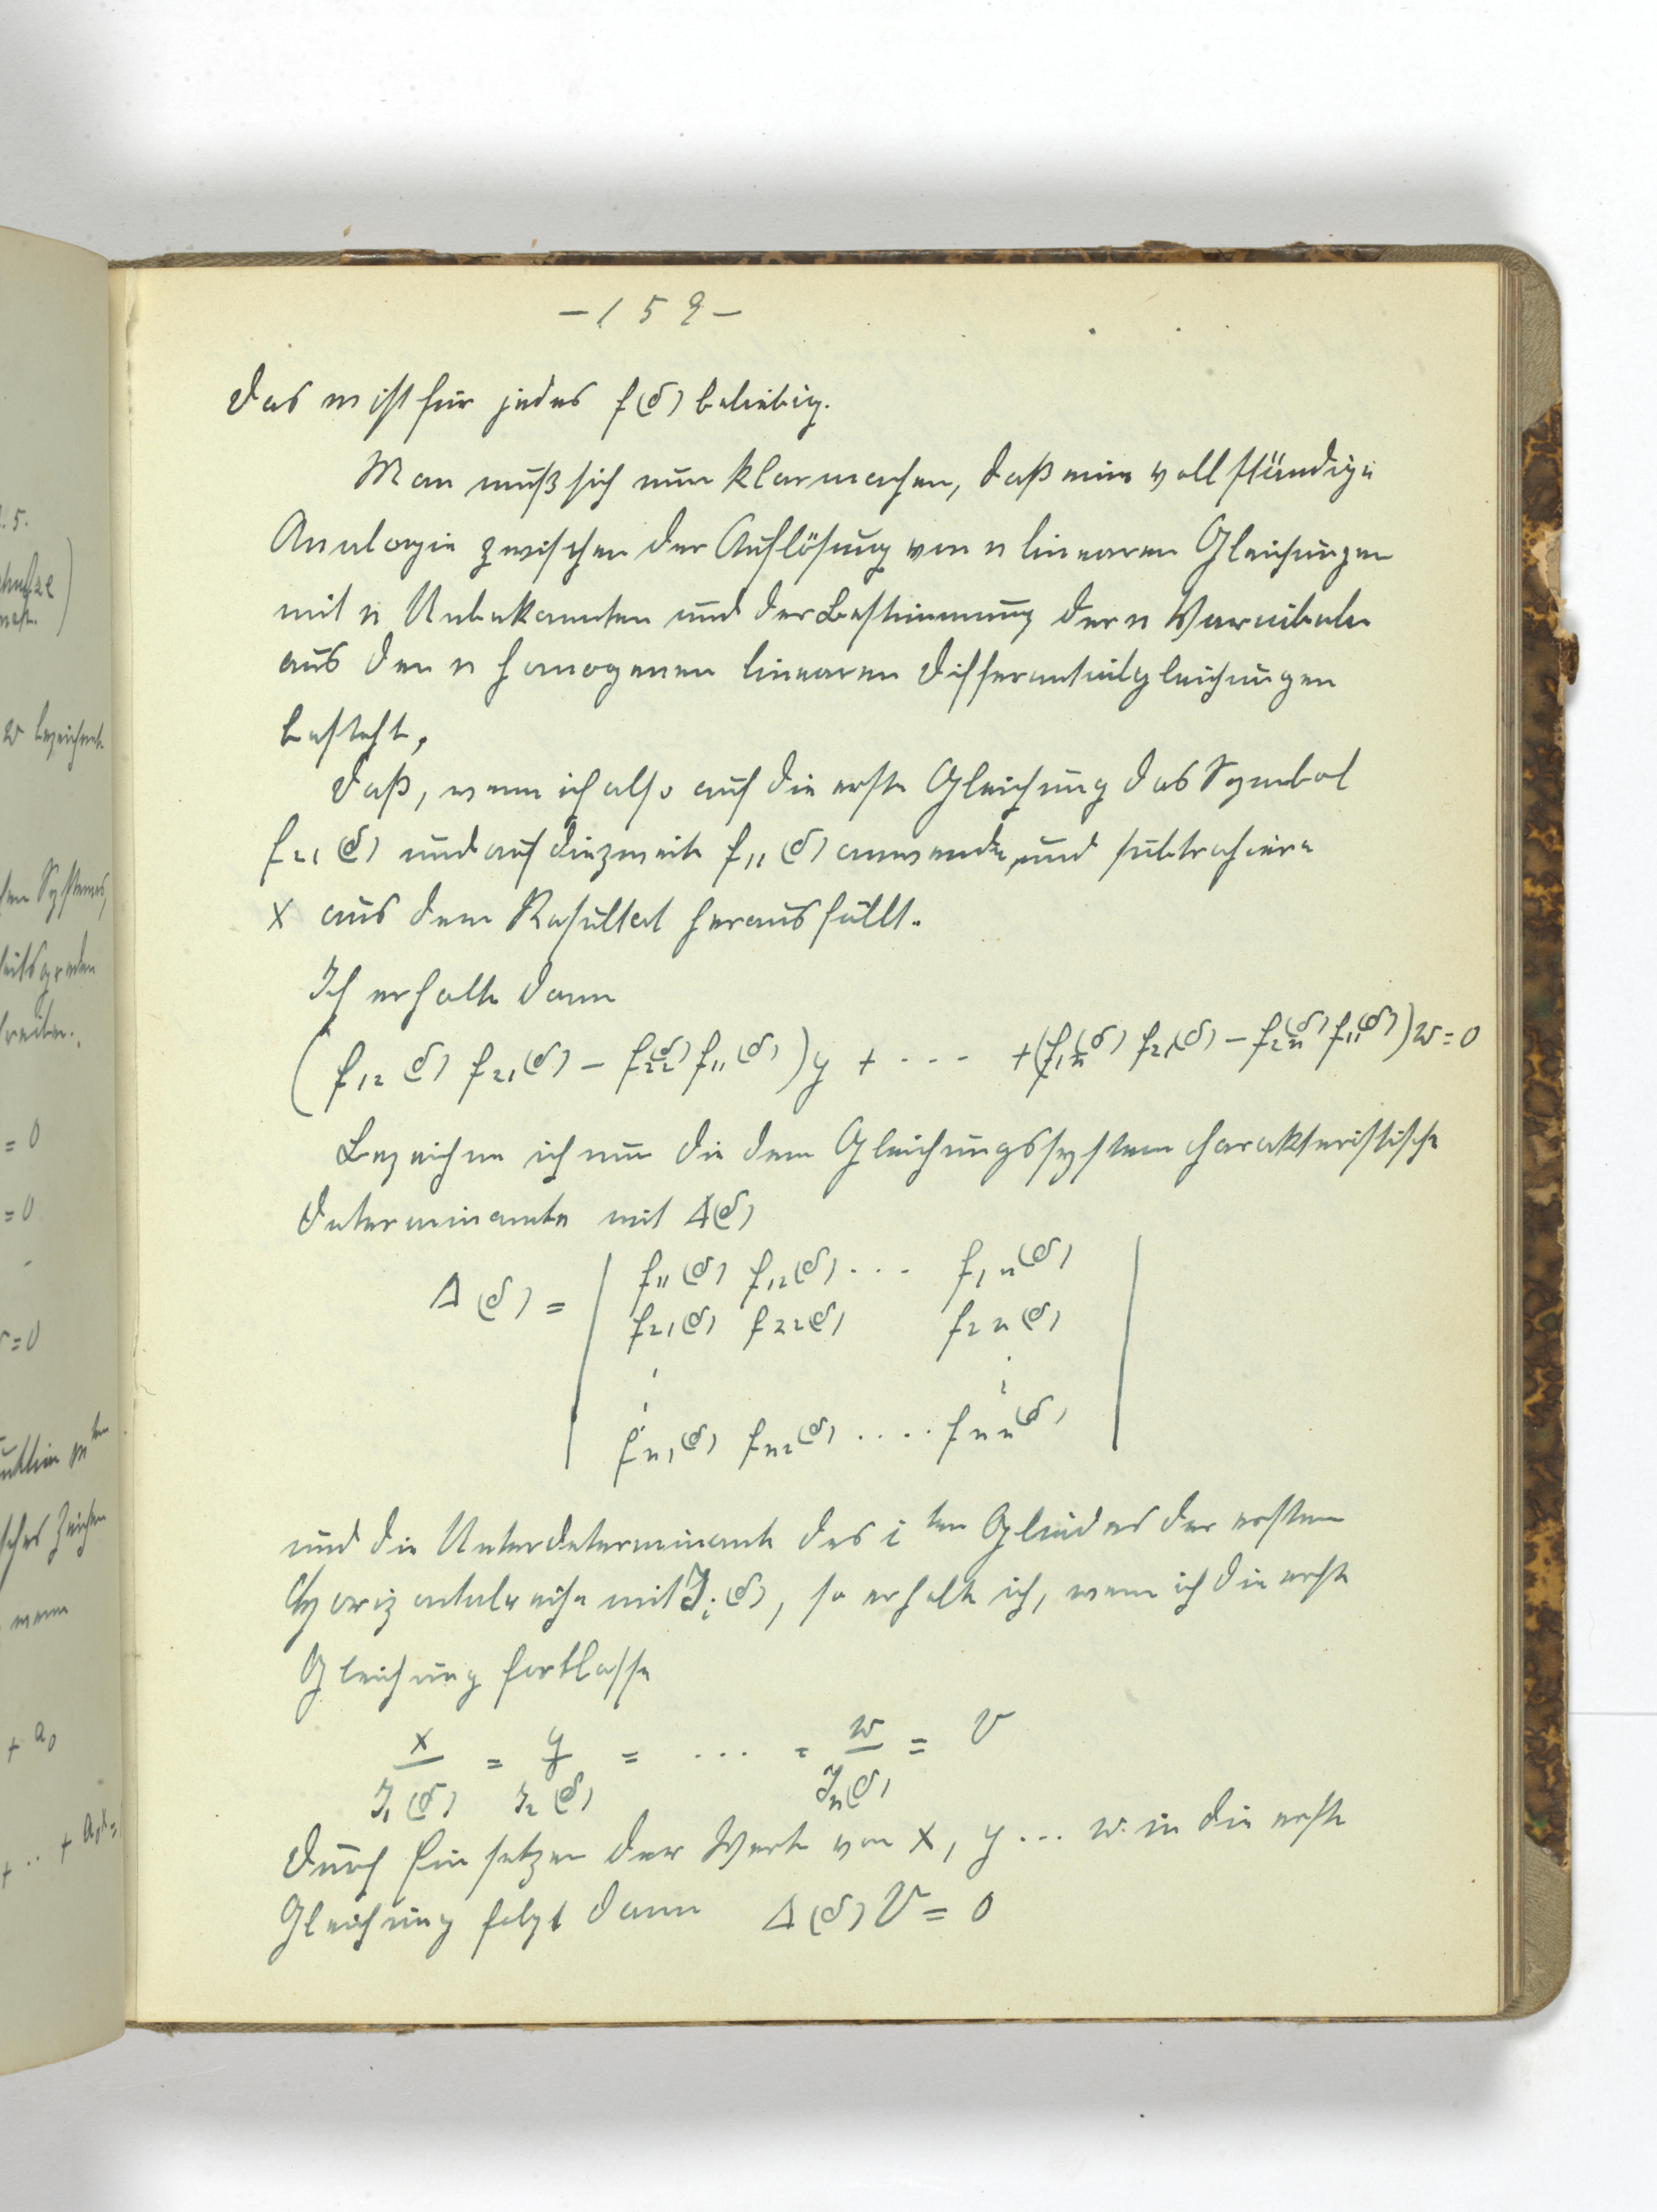 . 5.
w bezeichnet
= 0
= 0
= 0
wenn
+ a₀
–159–
Das m ist für jedes f(δ) beliebig.
Man muß sich nun klarmachen, daß eine vollständige
Analogie zwischen der Auflösung von n linearen Gleichungen
mit n Unbekannten und der Bestimmung der n Variabeln
aus den n homogenen linearen Differentialgleichungen
besteht,
daß, wenn ich also auf die erste Gleichung das Symbol
f₂₁(δ) und auf die zweite f₁₁(δ) anwende, und subtrahiere
x aus dem Resultat herausfällt.
Ich erhalte dann
(f₁₂(δ) f₂₁(δ) – f₂₂(δ) f₁₁(δ)) y + ··· + (f₁ₙ(δ) f₂₁(δ) – f₂ₙ(δ) f₁₁(δ)) w = 0
Bezeichne ich nun die dem Gleichungssystem charakteristische
Determinante mit Δ(δ)
Δ(δ) = | f₁₁(δ) f₁₂(δ) ··· f₁ₙ(δ) |
f₂₁(δ) f₂₂(δ) f₂ₙ(δ)
fₙ₁(δ) fₙ₂(δ) ···· fₙₙ(δ)
und die Unterdeterminante des i ten Gliedes der ersten
Horizontalreihe mit J_i(δ), so erhalte ich, wenn ich die erste
Gleichung fortlasse
x/J₁(δ) = y/J₂(δ) = ··· = w/Jₙ(δ) = V
Durch Einsetzen der Werte von x, y ... w in die erste
Gleichung folgt dann Δ(δ) V = 0